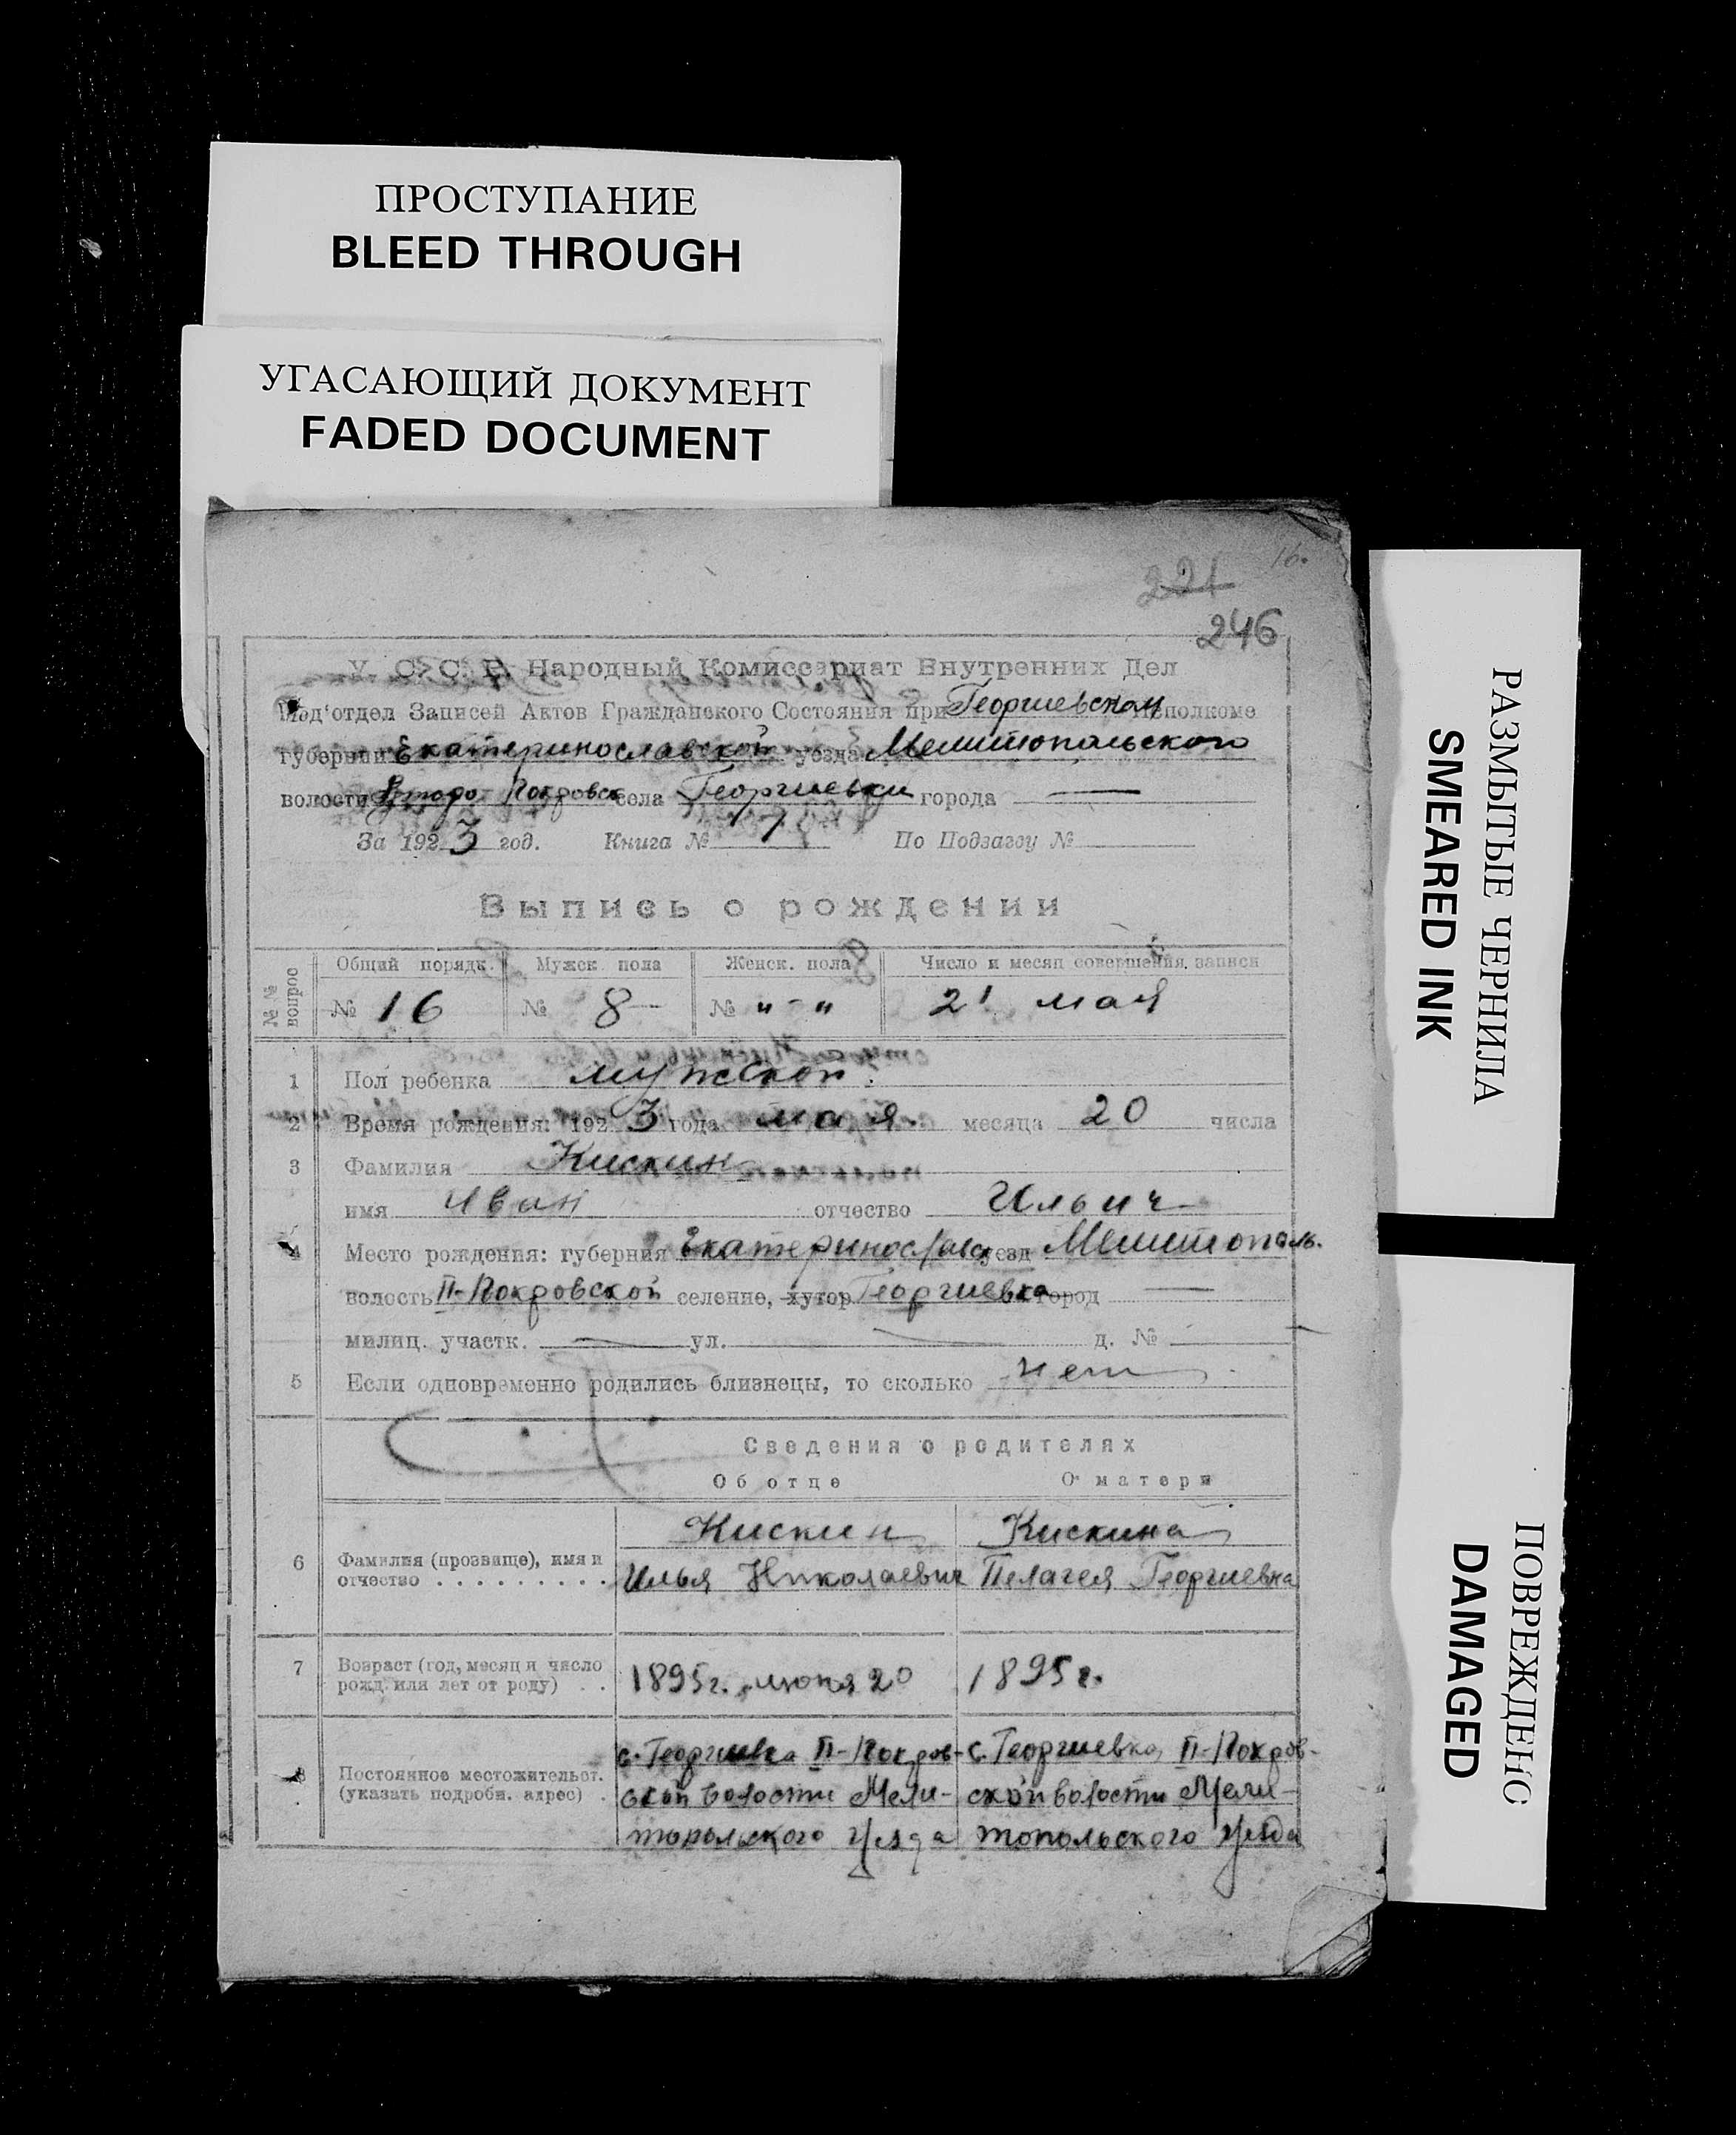 ПРОСТУПАНИЕ
BLEED THROUGH
УГАСАЮЩИЙ ДОКУМЕНТ
FADED DOCUMENT
РАЗМЫТЫЕ ЧЕРНИЛА
SMEARED INK
ПОВРЕЖДЕНО
DAMAGED
16.
221
246
У. С. С. Р. Народный Комиссариат Внутренних Дел
Под'отдел Записей Актов Гражданского Состояния при Георгиевском Исполкоме
губернии Екатеринославской уезда Мелитопольского
волости Второ Покровск села Георгиевки города —
За 1923 год. Книга № 1 По Подзагсу №
Выпись о рождении
№№ вопрос Общий порядк. Мужск. пола Женск. пола Число и месяц совершения записи
№ 16 № 8 — № " - " 21 мая
1 Пол ребенка мужской.
2 Время рождения: 1923 года мая месяца 20 числа
3 Фамилия Кискин
имя Иван отчество Ильич
4 Место рождения: губерния Екатеринославск уезд Мелитополь.
волость II-Покровской селение, хутор Георгиевка город —
милиц. участк. — ул. — д. № —
5 Если одновременно родились близнецы, то сколько нет
Сведения о родителях
Об отце О матери
Кискин Кискина
6 Фамилия (прозвище), имя и
отчество . . . . . . . . . Илья Николаевич Пелагея Георгиевна
7 Возраст (год, месяц и число
рожд. или лет от роду) . . 1895 г. июня 20 1895 г.
с. Георгиевка II-Покров- с. Георгиевка, II-Покров-
8 Постоянное местожительст.
(указать подробн. адрес) . ской волости Мели- ской волости Мели-
топольского уезда топольского уезда